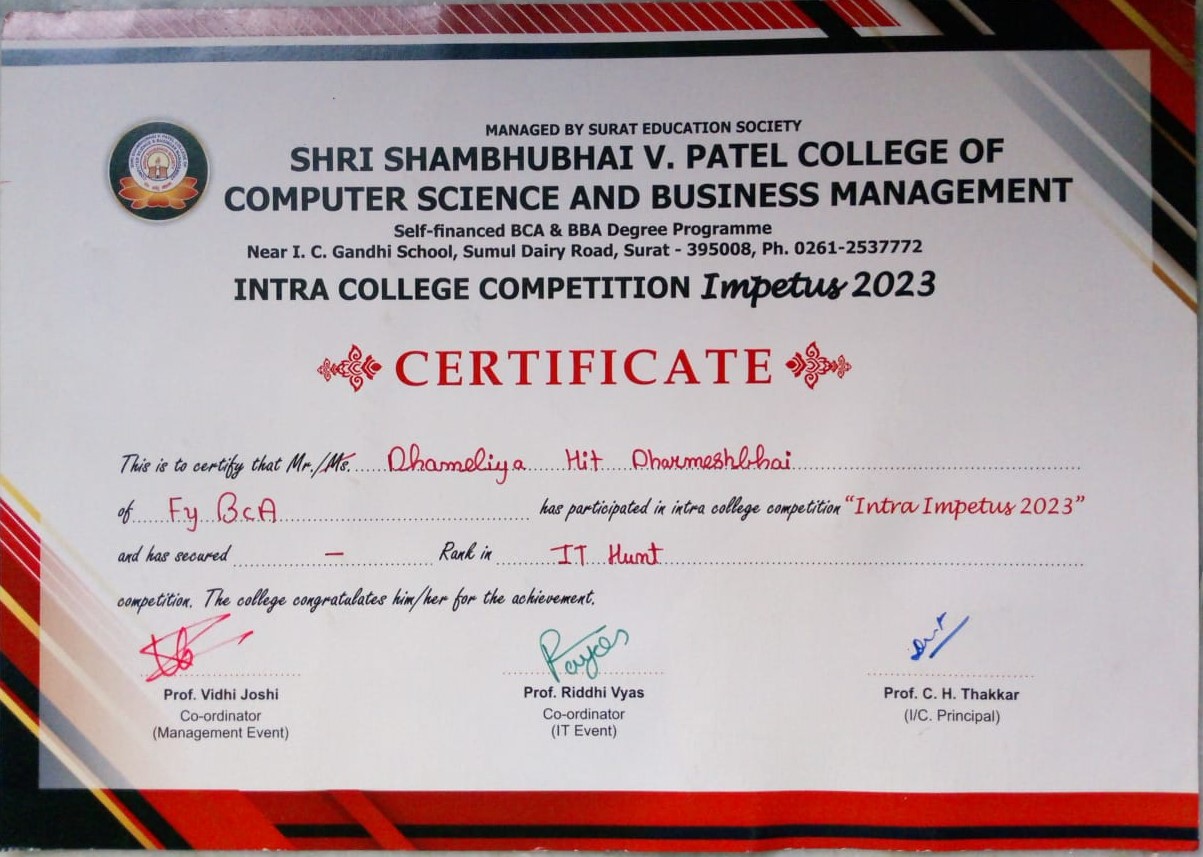 MANAGED BY SURAT EDUCATION SOCIETY
SHRI SHAMBHUBHAI V. PATEL COLLEGE OF
COMPUTER SCIENCE AND BUSINESS MANAGEMENT
Self-financed BCA & BBA Degree Programme
Near I. C. Gandhi School, Sumul Dairy Road, Surat - 395008, Ph. 0261-2537772
INTRA COLLEGE COMPETITION Impetus 2023
CERTIFICATE
This is to certify that Mr./Ms. Dhameliya Hit Dharmeshbhai
of Fy BcA has participated in intra college competition “Intra Impetus 2023”
and has secured — Rank in IT Hunt
competition. The college congratulates him/her for the achievement.
Prof. Vidhi Joshi Prof. Riddhi Vyas Prof. C. H. Thakkar
Co-ordinator Co-ordinator (I/C. Principal)
(Management Event) (IT Event)